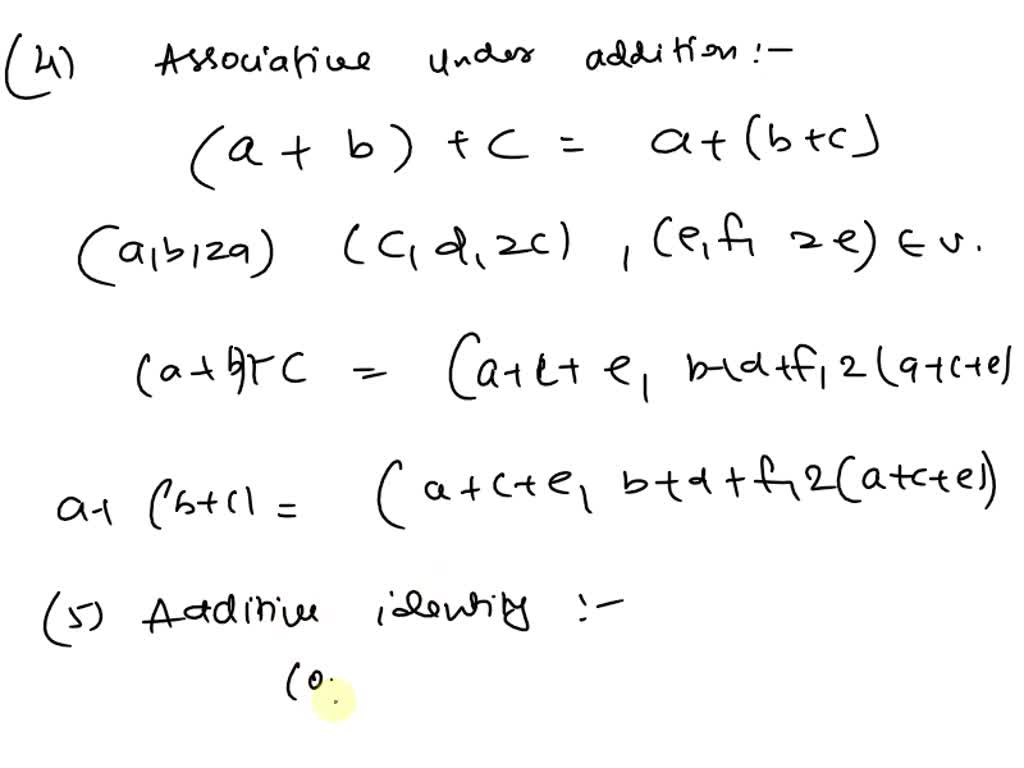 (4) Associative under addition :-
(a + b) + c = a + (b+c)
(a, b, 2a) (c, d, 2c) , (e, f, 2e) ∈ v.
(a+b)+c = (a+c+e, b+d+f, 2(a+c+e)
a+ (b+c) = (a+c+e, b+d+f, 2(a+c+e))
(5) Additive identity :-
(0,